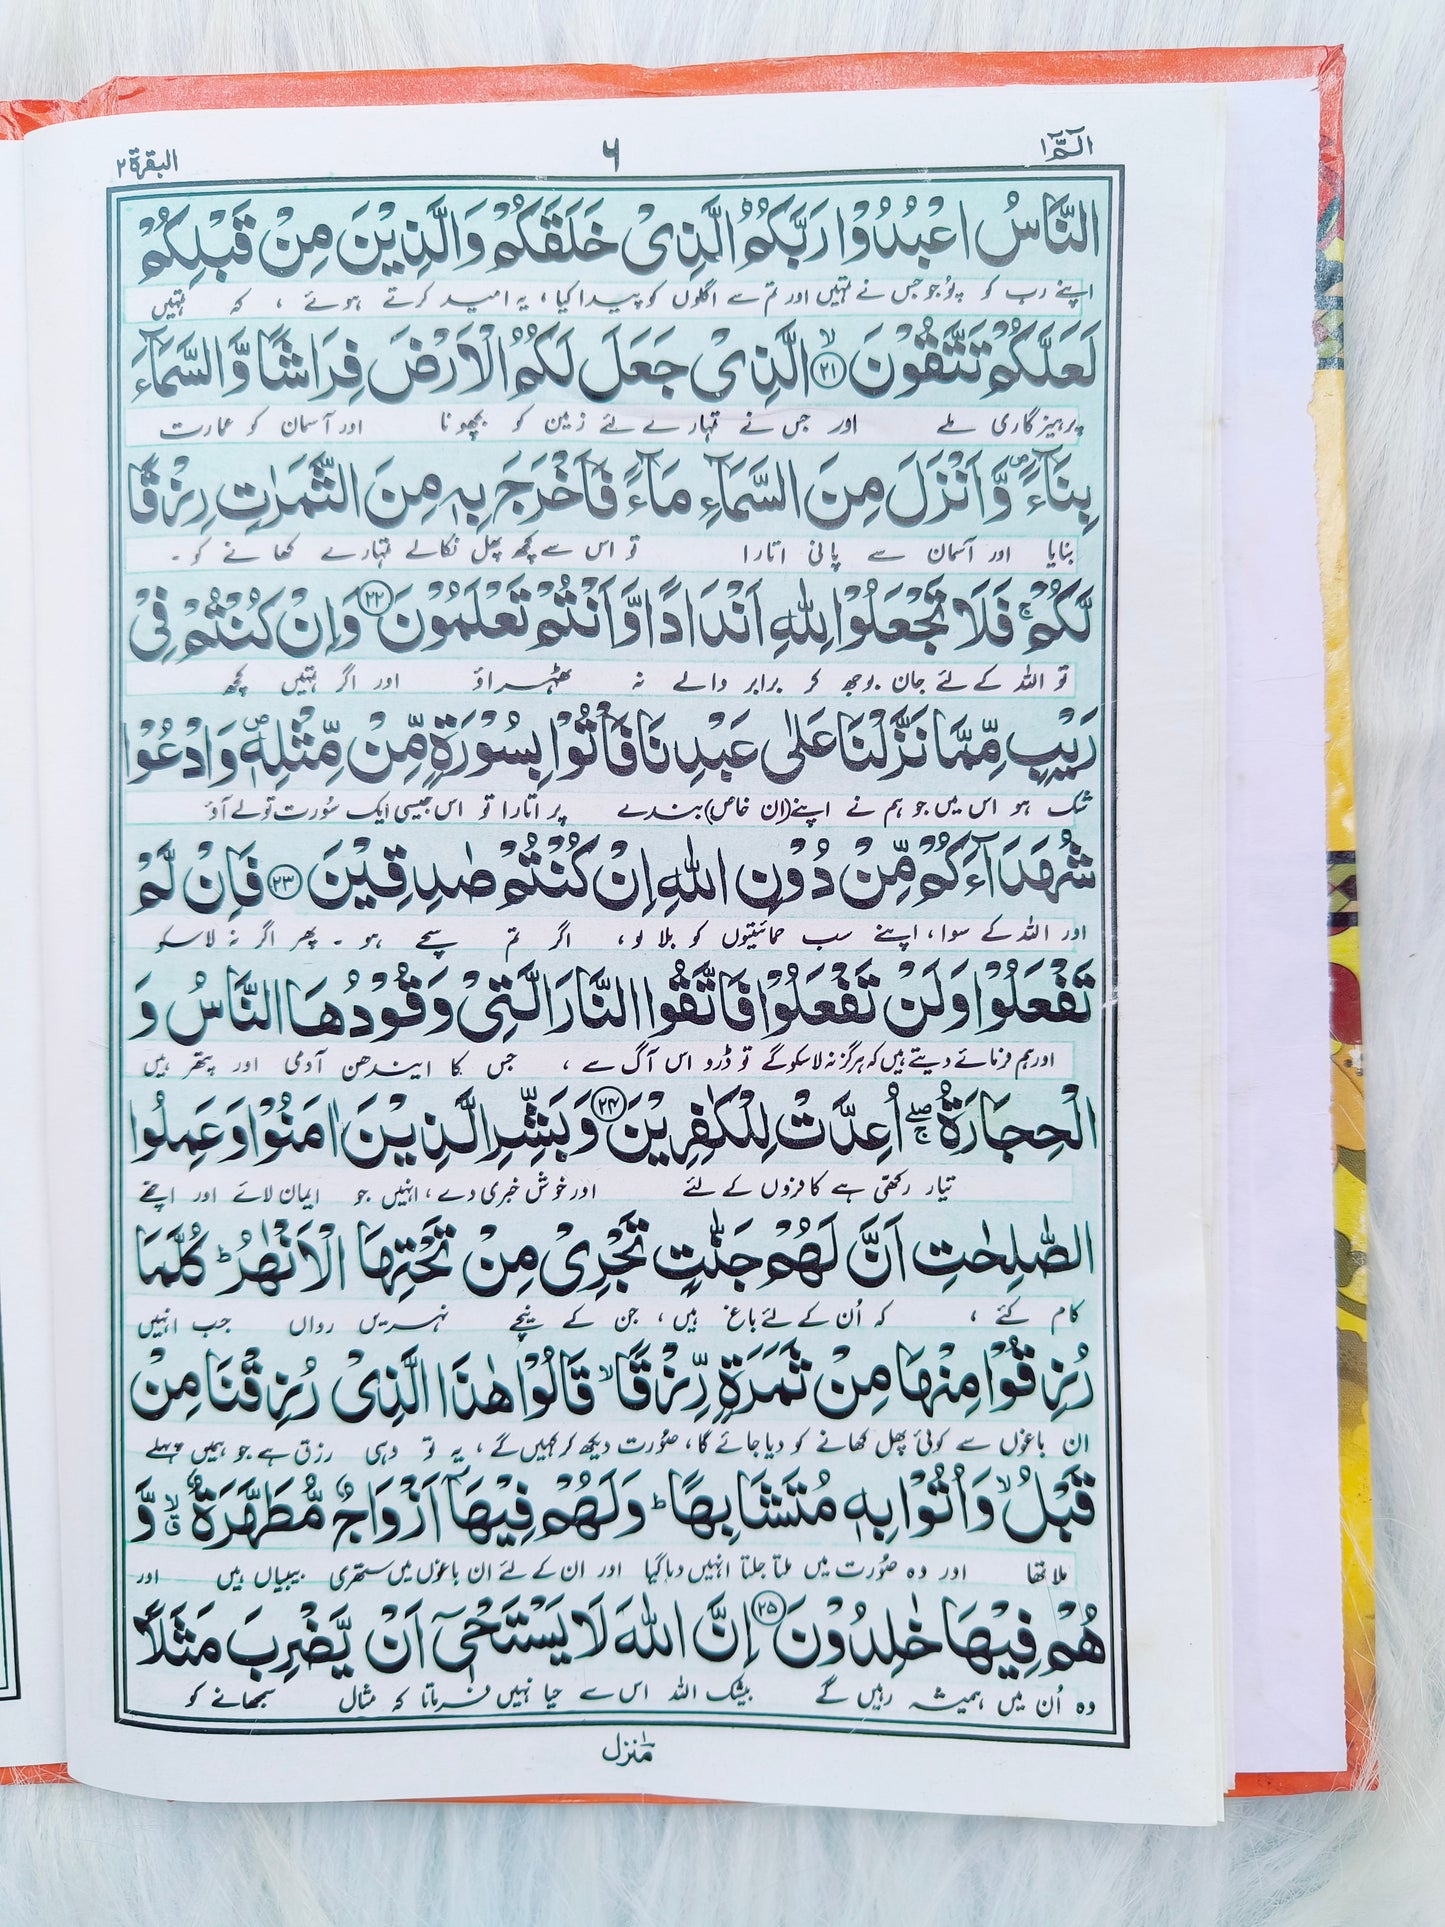 الٓمّٓ ۱
۶
البقرة ۲
النَّاسُ اعْبُدُوْا رَبَّكُمُ الَّذِیْ خَلَقَكُمْ وَالَّذِیْنَ مِنْ قَبْلِكُمْ
اپنے رب کو پوجو جس نے تمہیں اور تم سے اگلوں کو پیدا کیا، یہ امید کرتے ہوئے، کہ تمہیں
لَعَلَّكُمْ تَتَّقُوْنَ ۙ﴿۲۱﴾ الَّذِیْ جَعَلَ لَكُمُ الْاَرْضَ فِرَاشًا وَّالسَّمَآءَ
پرہیزگاری ملے اور جس نے تمہارے لئے زمین کو بچھونا اور آسمان کو عمارت
بِنَآءً ۪ وَّاَنْزَلَ مِنَ السَّمَآءِ مَآءً فَاَخْرَجَ بِهٖ مِنَ الثَّمَرٰتِ رِزْقًا
بنایا اور آسمان سے پانی اتارا تو اس سے کچھ پھل نکالے تمہارے کھانے کو۔
لَّكُمْ ۚ فَلَا تَجْعَلُوْا لِلّٰهِ اَنْدَادًا وَّاَنْتُمْ تَعْلَمُوْنَ ﴿۲۲﴾ وَاِنْ كُنْتُمْ فِیْ
تو اللہ کے لئے جان بوجھ کر برابر والے نہ ٹھہراؤ اور اگر تمہیں کچھ
رَیْبٍ مِّمَّا نَزَّلْنَا عَلٰی عَبْدِنَا فَاْتُوْا بِسُوْرَةٍ مِّنْ مِّثْلِهٖ ۪ وَادْعُوْا
شک ہو اس میں جو ہم نے اپنے (ان خاص) بندے پر اتارا تو اس جیسی ایک سُورت تو لے آؤ
شُهَدَآءَكُمْ مِّنْ دُوْنِ اللّٰهِ اِنْ كُنْتُمْ صٰدِقِیْنَ ﴿۲۳﴾ فَاِنْ لَّمْ
اور اللہ کے سوا، اپنے سب حمائیتوں کو بلا لو، اگر تم سچے ہو۔ پھر اگر نہ لا سکو
تَفْعَلُوْا وَلَنْ تَفْعَلُوْا فَاتَّقُوا النَّارَ الَّتِیْ وَقُوْدُهَا النَّاسُ وَ
اور ہم فرمائے دیتے ہیں کہ ہرگز نہ لا سکو گے تو ڈرو اس آگ سے، جس کا ایندھن آدمی اور پتھر ہیں
الْحِجَارَةُ ۖۚ اُعِدَّتْ لِلْكٰفِرِیْنَ ﴿۲۴﴾ وَبَشِّرِ الَّذِیْنَ اٰمَنُوْا وَعَمِلُوا
تیار رکھی ہے کافروں کے لئے اور خوش خبری دے، انہیں جو ایمان لائے اور اچھے
الصّٰلِحٰتِ اَنَّ لَهُمْ جَنّٰتٍ تَجْرِیْ مِنْ تَحْتِهَا الْاَنْهٰرُ ؕ كُلَّمَا
کام کئے، کہ اُن کے لئے باغ ہیں، جن کے نیچے نہریں رواں جب انہیں
رُزِقُوْا مِنْهَا مِنْ ثَمَرَةٍ رِّزْقًا ۙ قَالُوْا هٰذَا الَّذِیْ رُزِقْنَا مِنْ
ان باغوں سے کوئی پھل کھانے کو دیا جائے گا، صُورت دیکھ کر کہیں گے، یہ تو وہی رزق ہے جو ہمیں پہلے
قَبْلُ ۙ وَاُتُوْا بِهٖ مُتَشَابِهًا ؕ وَلَهُمْ فِیْهَاۤ اَزْوَاجٌ مُّطَهَّرَةٌ ۙۗ وَّ
ملا تھا اور وہ صُورت میں ملتا جلتا انہیں دیا گیا اور ان کے لئے ان باغوں میں ستھری بیبیاں ہیں اور
هُمْ فِیْهَا خٰلِدُوْنَ ﴿۲۵﴾ اِنَّ اللّٰهَ لَا یَسْتَحْیٖۤ اَنْ یَّضْرِبَ مَثَلًا
وہ اُن میں ہمیشہ رہیں گے بیشک اللہ اس سے حیا نہیں فرماتا کہ مثال سمجھانے کو
منزل ۱